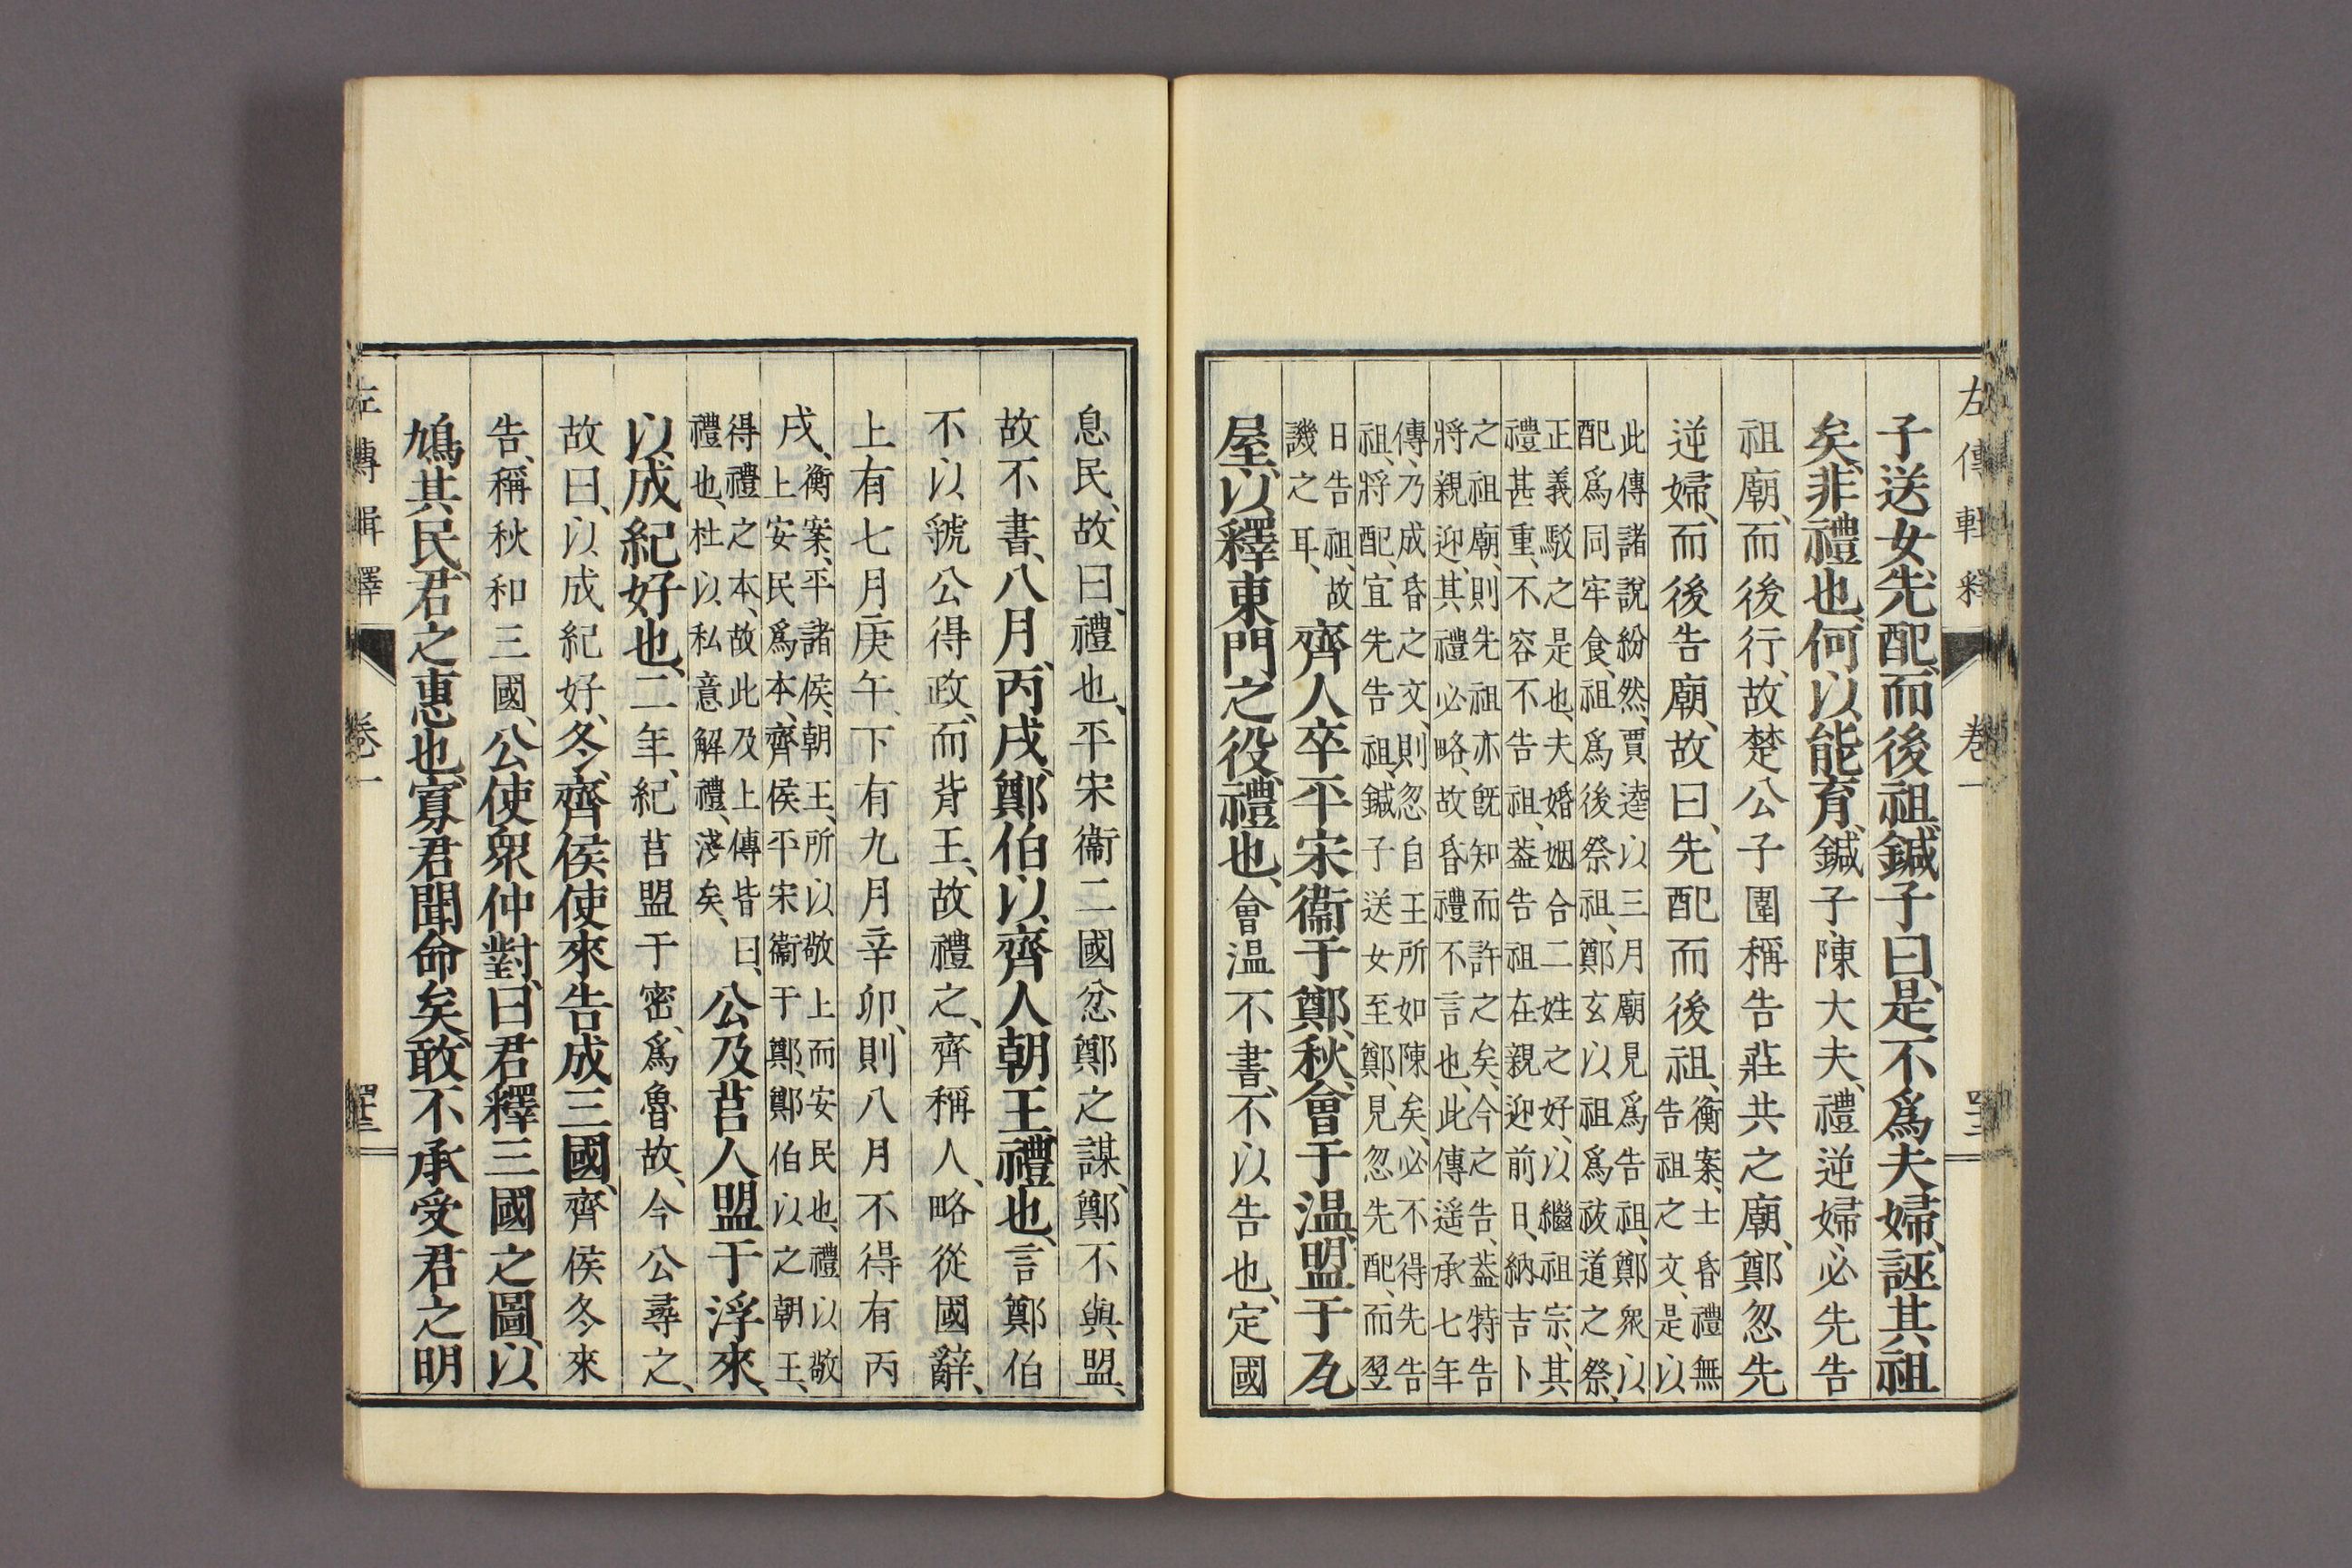 左傳輯釋 卷一
子送女先配、而後祖、鍼子曰、是不爲夫婦、誣其祖
矣、非禮也、何以能育、鍼子、陳大夫、禮逆婦、必先告
祖廟、而後行、故楚公子圍稱告莊共之廟、鄭忽先
逆婦、而後告廟、故曰、先配而後祖、衡案、士昏禮無
告祖之文、是以
此傳諸說紛然、賈逵以三月廟見爲告祖、鄭衆以
配爲同牢食、祖爲後祭祖、鄭玄以祖爲祓道之祭、
正義駁之是也、夫婚姻合二姓之好、以繼祖宗、其
禮甚重、不容不告祖、葢告祖在親迎前日、納吉卜
之祖廟、則先祖亦旣知而許之矣、今之告、葢特告
將親迎、其禮必略、故昏禮不言也、此傳遥承七年
傳、乃成昏之文、則忽自王所如陳矣、必不得先告
祖、將配、宜先告祖、鍼子送女至鄭、見忽先配、而翌
日告祖、故
譏之耳、齊人卒平宋衞于鄭、秋、會于温、盟于瓦
屋、以釋東門之役、禮也、會温不書、不以告也、定國
息民、故曰、禮也、平宋衞二國忿鄭之謀、鄭不與盟、
故不書、八月、丙戌、鄭伯以齊人朝王、禮也、言鄭伯
不以虢公得政、而背王、故禮之、齊稱人、略從國辭、
上有七月庚午、下有九月辛卯、則八月不得有丙
戌、衡案、平諸侯、朝王、所以敬上而安民也、禮以敬
上安民爲本、齊侯平宋衞于鄭、鄭伯以之朝王、
得禮之本、故此及上傳皆曰、
禮也、杜以私意解禮、淺矣、公及莒人盟于浮來、
以成紀好也、二年、紀莒盟于密、爲魯故、今公尋之、
故曰、以成紀好、冬、齊侯使來告成三國、齊侯冬來
告、稱秋和三國、公使衆仲對、曰、君釋三國之圖、以
鳩其民、君之惠也、寡君聞命矣、敢不承受君之明
左傳輯釋 卷一